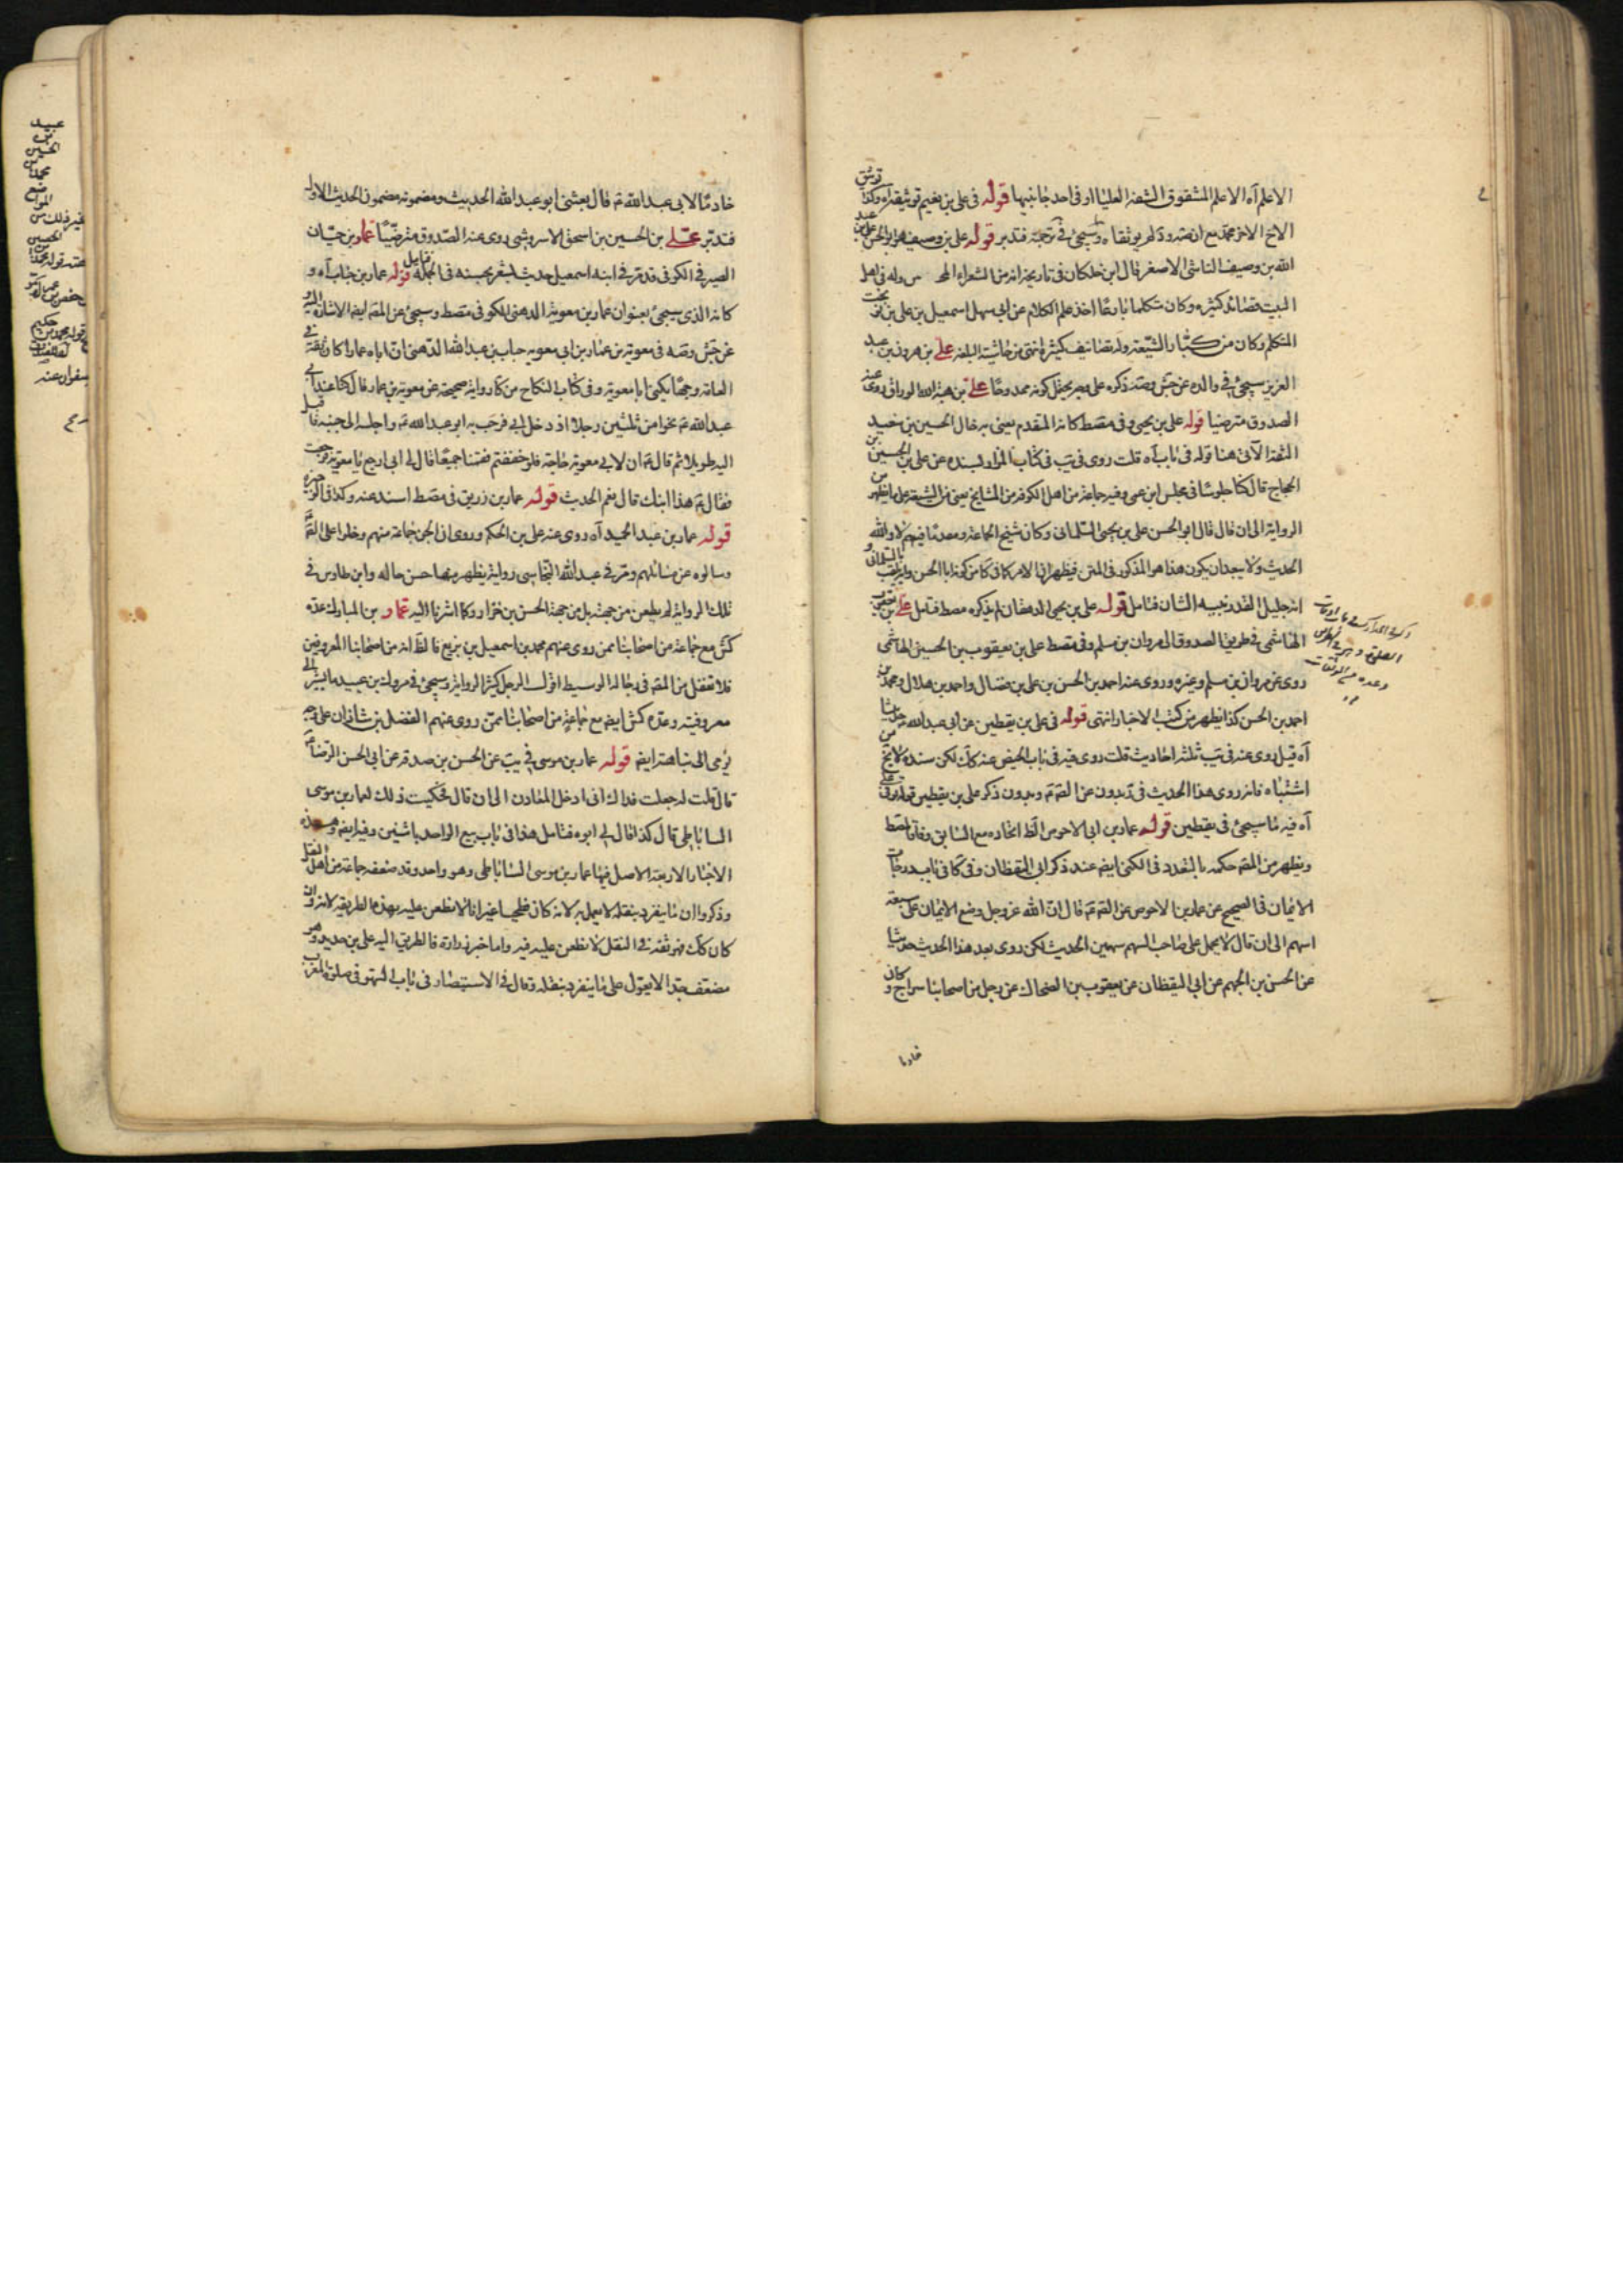 الاعلم آه الاعلم المشقوق الشفة العليا او فى احد جانبيها قوله فى على بن نعيم توثيقه آه وكذا توثيق
الاخ الاخر محمد مع ان ضه ود لم يوثقاه وسيجئ فى ترجمته فتدبر قوله على بن وصيف هو ابو الحسن على بن عبد
الله بن وصيف الناشى الاصغر قال ابن خلكان فى تاريخه انه من الشعراء وله فى اهل
البيت قصائد كثيره وكان متكلما بارعا اخذ علم الكلام عن ابى سهل اسمعيل بن على بن نوبخت
المتكلم وكان من كبار الشيعة وله تصانيف كثيرة انتهى من حاشية البلغه على بن هرون بن عبد
العزيز سيجئ فى والده عن جش وصه ذكره على وجه يحتمل كونه ممدوحا على بن هبة الله الوراق روى عنه
الصدوق مترضيا قوله على بن يحيى وفى مصط كانه المتقدم يعنى به خال الحسين بن سعيد
الثقة الآتى هنا قوله فى باب آه قلت روى فى يب فى كتاب المزار بسنده عن على بن الحسين بن
الحجاج قال كنا جلوسا فى مجلس ابن عمى وفيه جماعة من اهل الكوفة من المشايخ يعنى من الشيعة على ما يظهر من
الرواية الى ان قال قال ابو الحسن على بن يحيى السلمانى وكان شيخ الجماعة ومقدما فيهم لا والله
الحديث ولا يبعد ان يكون هذا هو المذكور فى المتن فيظهر ان الامر كما فى كا من كونه ابا الحسن ولقب بالسلمانى و
انه جليل القدر نبيه الشان فتامل قوله على بن يحيى الدهقان لم يذكره مصط فتامل على بن يعقوب
الهاشمى فى طريق الصدوق الى مروان بن مسلم وفى مصط على بن يعقوب بن الحسين الهاشمى
روى عن مروان بن مسلم وغيره وروى عنه احمد بن الحسن بن على بن فضال واحمد بن هلال ومحمد بن
احمد بن الحسن كذا يظهر من كتب الاخبار انتهى قوله فى على بن يقطين عن ابى عبد الله حديثا
آه قيل روى عنه فى يب ثلثة احاديث قلت روى فيه فى باب الحيض عنه كك لكن سنده لا يخ من
اشتباه فانه روى هذا الحديث فى يب بدون عن الصم وبدون ذكر على بن يقطين قوله وفى
آه فيه ما سيجئ فى يقطين قوله عمار بن ابى الاحوص الظ اتحاده مع السابق وفاقا لمصط
ويظهر من المصه حكمه بالتعدد فى الكنى ايضه عند ذكر ابى اليقظان وفى كا فى باب درجات
الايمان فى الصحيح عن عمار بن الاحوص عن الصم قال ان الله عز وجل وضع الايمان على سبعة
اسهم الى ان قال لا يحمل على صاحب السهم سهمين الحديث لكن روى بعد هذا الحديث حديثا
عن الحسن بن الجهم عن ابى اليقظان عن يعقوب بن الضحاك عن رجل من اصحابنا سراج وكان
خادما
خادما لابى عبد الله عم قال بعثنى ابو عبد الله الحديث ومضمونه مضمون الحديث الاول
فتدبر على بن الحسين بن اسحق الاسروشى روى عنه الصدوق مترضيا عمار بن حيان
الصيرفى الكوفى قد مر فى ابنه اسمعيل حديث يشعر بحسنه فى الجملة فتامل قوله عمار بن جناب آه و
كانه الذى سيجئ بعنوان عمار بن معوية الدهنى الكوفى فى مصط وسيجئ عن المصه ايضه الاشارة اليه و
عن جش وصه فى معوية بن عمار بن ابى معوية جناب بن عبد الله الدهنى ان اباه عمارا كان ثقة فى
العامة وجها يكنى ابا معوية وفى كتاب النكاح من كا رواية صحيحة عن معوية بن عمار قال كنا عند ابى
عبد الله عم نحوا من ثلثين رجلا اذ دخل ابى فرحب به ابو عبد الله عم واجلسه الى جنبه فاقبل
اليه طويلا ثم قال عم ان لابى معوية حاجة فلو خففتم فقمنا جميعا فقال لى ابى ارجع يا معوية فرجعت
فقال عم هذا ابنك قال نعم الحديث قوله عمار بن زريق فى مصط اسند عنه وكذا فى الوجيزة
قوله عمار بن عبد الحميد آه روى عنه على بن الحكم وروى ان الجن جماعة منهم دخلوا على الصم
وسالوه عن مسائلهم ومر فى عبد الله النجاشى رواية يظهر منها حسن حاله وابن طاوس فى
تلك الرواية لم يطعن من جهته بل من جهة الحسن بن خرزاد وكما اشرنا اليه عمار بن المبارك عده
كش مع جماعة من اصحابنا ممن روى عنهم محمد بن اسمعيل بن بزيع فالظ انه من اصحابنا المعروفين
فلا تغفل من المصه فى رجاله الوسيط اقول الرجل كثير الرواية وسيجئ فى مروك بن عبيد ما يشير الى
معروفيته وعده كش ايضه مع جماعة من اصحابنا ممن روى عنهم الفضل بن شاذان على وجه
يومى الى نباهته ايضه قوله عمار بن موسى فى يب عن الحسن بن صدقه عن ابى الحسن الرضا عم
قال قلت له جعلت فداك انى ادخل المعادن الى ان قال فحكيت ذلك لعمار بن موسى
الساباطى قال كذا قال لى ابوه فتامل هذا فى باب بيع الواحد باثنين وفيه ايضه وهذه
الاخبار الاربعة الاصل فيها عمار بن موسى الساباطى وهو واحد وقد ضعفه جماعة من اهل النقل
وذكروا ان ما ينفرد بنقله لا يعمل به لانه كان فطحيا غير انا لا نطعن عليه بهذه الطريقة لانه وان
كان كك فهو ثقة فى النقل لا نطعن عليه فيه واما خبر زرارة فالطريق اليه على بن حديد وهو
مضعف جدا لا يعول على ما ينفرد بنقله وقال فى الاستبصار فى باب السهو فى صلوة المغرب
عبيد
بن
الحسين